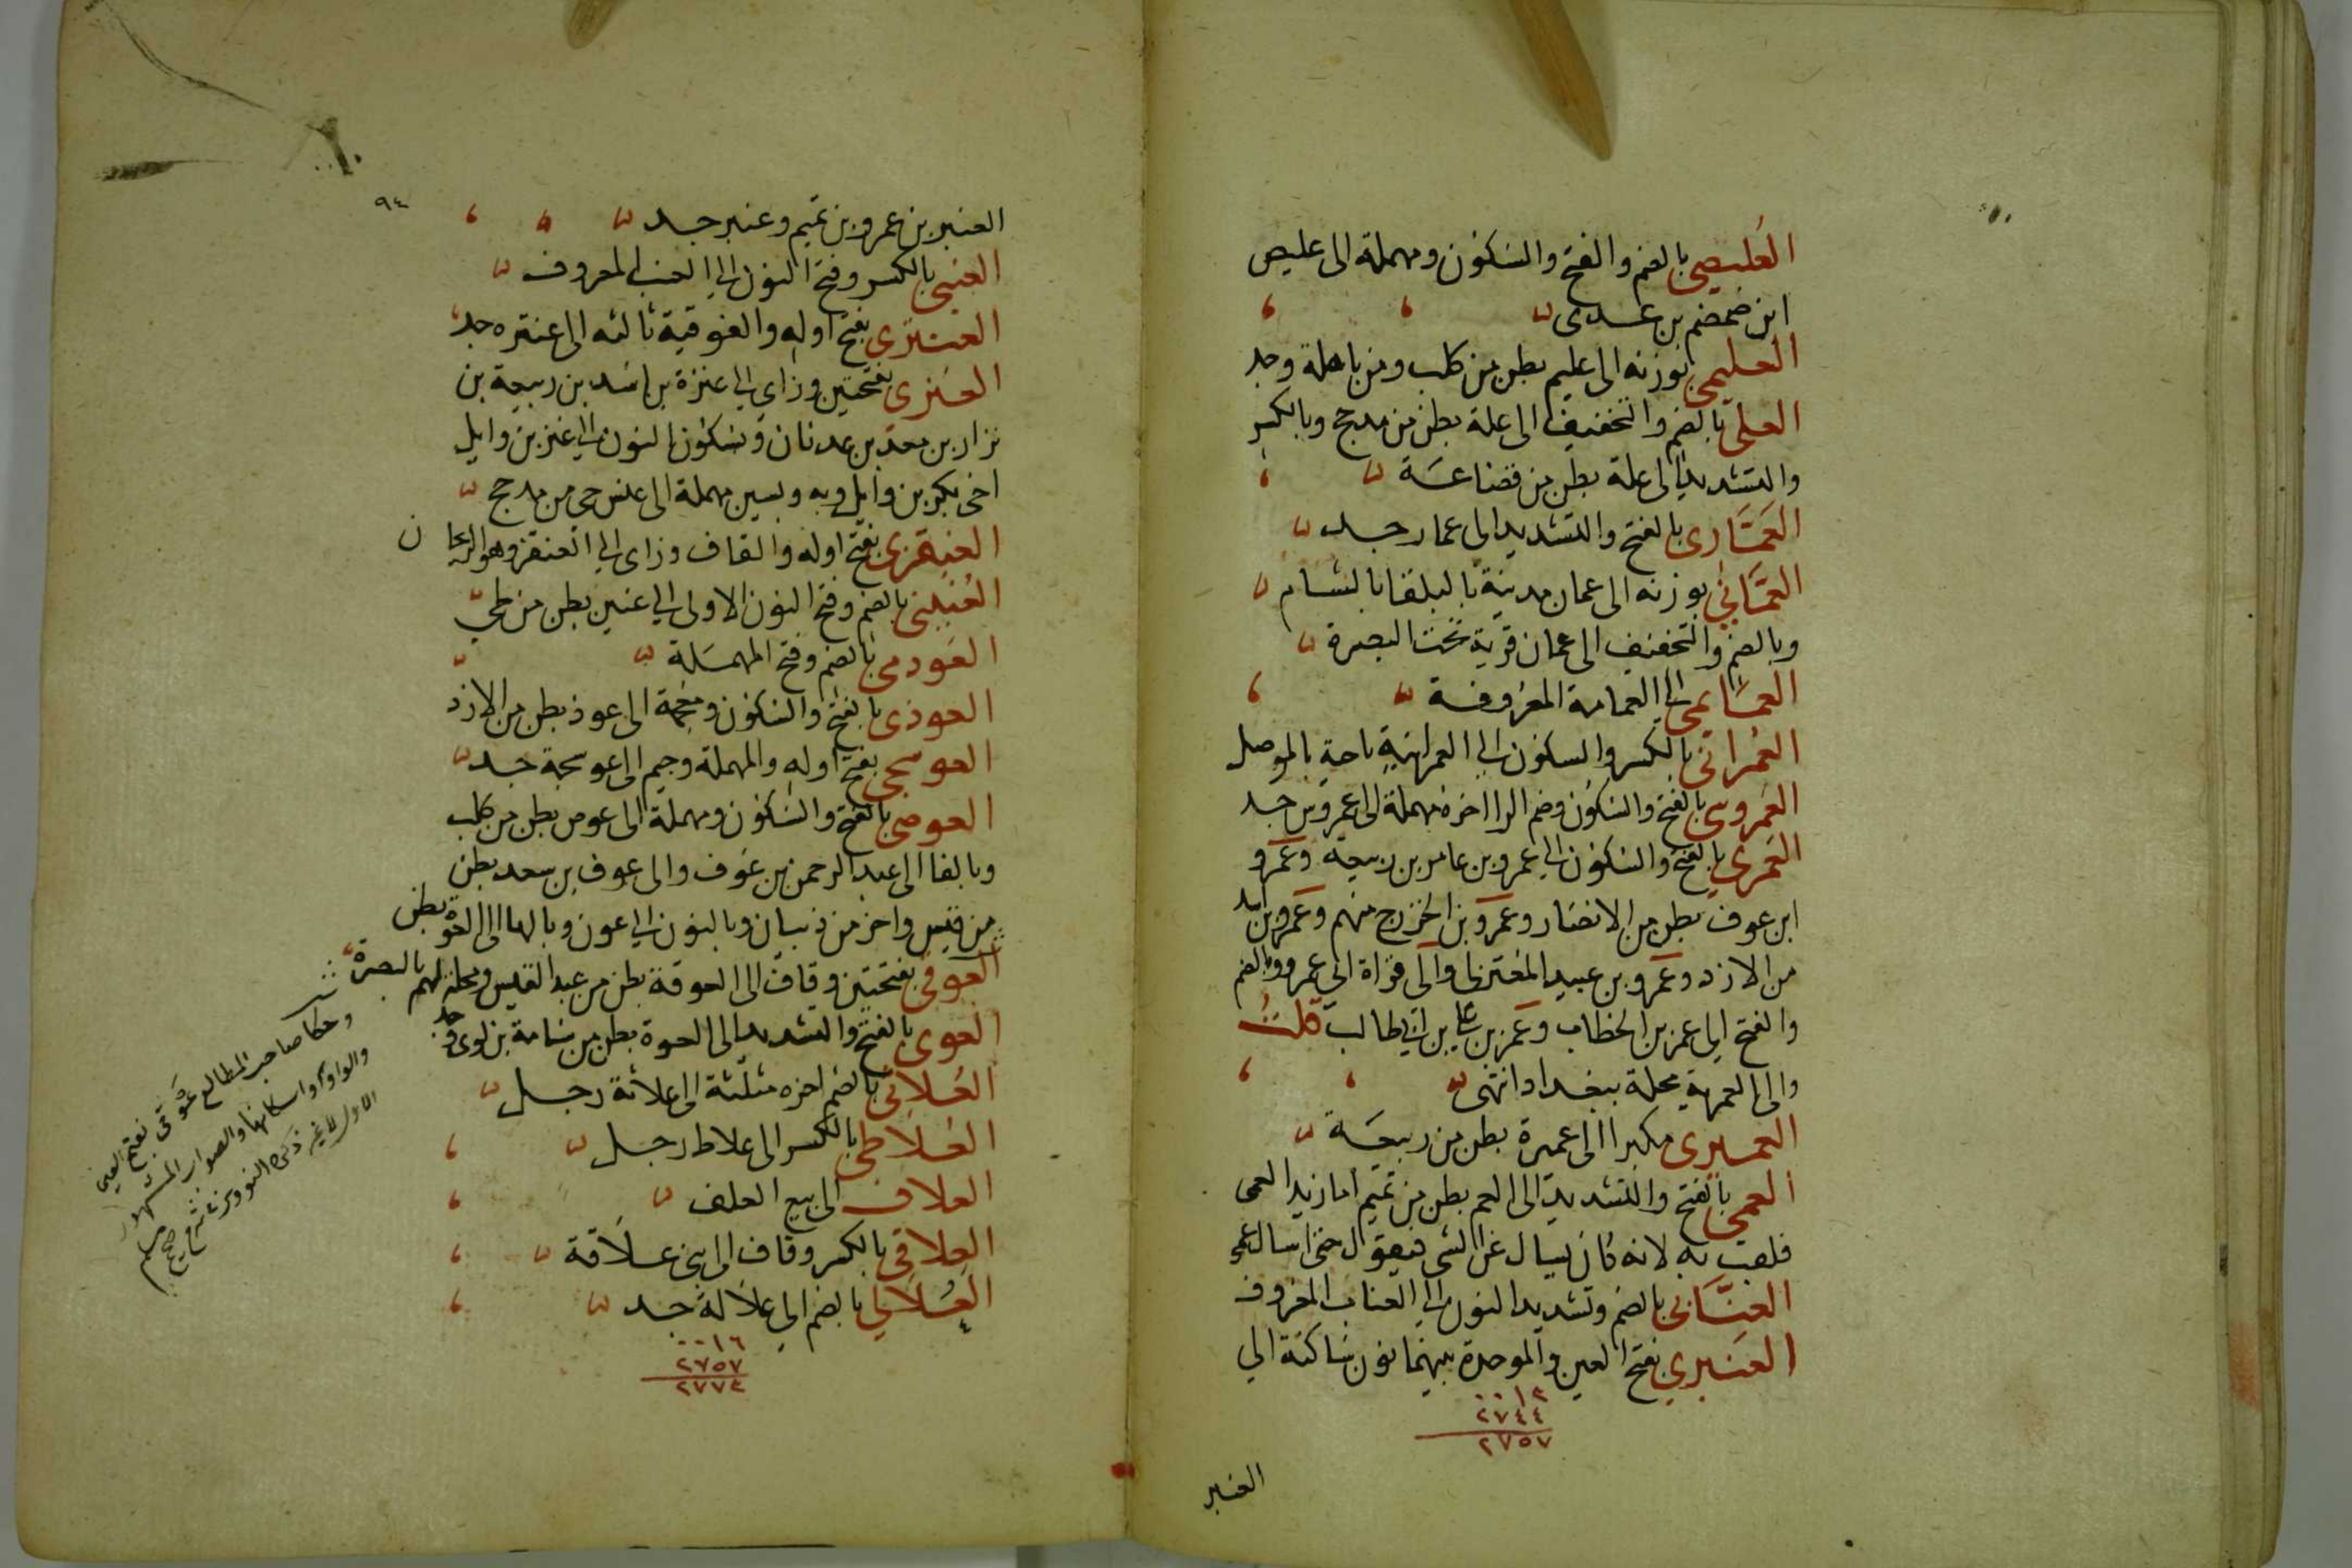 العُليصي بالضم والفتح والسكون ومهملة الى عليص
ابن ضمضم بن عدى
العليمي بوزنه الى عليم بطن من كلب ومن باهلة وجد
العلى بالضم والتخفيف الى علة بطن من مدحج وبالكسر
والتشديد الى علة بطن من قضاعة
العَمَّارى بالفتح والتشديد الى عمار جد
العَمَّانى بوزنه الى عمان مدينة بالبلقا بالشام
وبالضم والتخفيف الى عمان قرية تحت البصرة
العمايمى الى العمامة المعروفة
العمرانى بالكسر والسكون الى العمرانية ناحية بالموصل
العَمروسى بالفتح والسكون وضم الرا اخره مهملة الى عمروس جد
العَمرى بالفتح والسكون الى عمرو بن عامر بن ربيعة وعمرو
ابن عوف بطن من الانصار وعمرو بن الخزرج منهم وعمرو بن
من الازد وعمرو بن عبيد المعتزلى والى قراة ابى عمرو وبالضم
والفتح الى عمر بن الخطاب وعمر بن على بن ابى طالب قلت
والى العمرية محلة ببغداد انتهى
العميرى مكبرا الى عميرة بطن من ربيعة
العمى بالفتح والتشديد الى العم بطن من تميم اما زيد العمى
فلقب به لانه كان يسال عن الشى فيقول حتى اسال عمى
العنَّابى بالضم وتشديد النون الى العناب المعروف
العنبري بفتح العين والموحدة بينهما نون ساكنة الي
٠٠١٣
٢٧٤٤
٢٧٥٧
العنبر
٩٤
العنبر بن عمرو بن تميم وعنبر جد
العنبى بالكسر وفتح النون الى العنب المعروف
العنترى بفتح اوله والفوقية ثالثه الى عنتره جد
العنزى بفتحتين وزاى الى عنزة بن اسد بن ربيعة بن
نزار بن معد بن عدنان وبسكون النون الى عنز بن وايل
اخى بكر بن وايل وبه وبسين مهملة الى عنس حى من مدحج
العنقزى بفتح اوله والقاف وزاى الى العنقز وهو الريحان
العُنينى بالضم وفتح النون الاولى الى عنين بطن من طي
العودمى بالضم وفتح المهملة
العوذى بالفتح والسكون ومعجمة الى عوذ بطن من الازد
العوسجى بفتح اوله والمهملة وجيم الى عوسجة جد
العوصى بالفتح والسكون ومهملة الى عوص بطن من كلب
وبالفا الى عبد الرحمن بن عوف والى عوف بن سعد بطن
من قيس واخر من ذبيان وبالنون الى عون وبالها الى العوه بطن
العوقى بفتحتين وقاف الى العوقة بطن من عبد القيس ومحلة لهم بالبصرة
العوى بالفتح والتشديد الى العوة بطن من سامة بن لوى وجد
العُلاثى بالضم اخره مثلثة الى علاثة رجل
العلاطى بالكسر الى علاط رجل
العلاف الى بيع العلف
العلاقى بالكسر وقاف الى ابى علاقة
العُلالي بالضم الي علالة جد
٠٠١٦
٢٧٥٧
٢٧٧٤
وحكا صاحب المطالع عوقى بفتح العين
والواو واسكانها والصواب المشهور
الاول لا غير ذكره النووى فى شرح صحيح مسلم